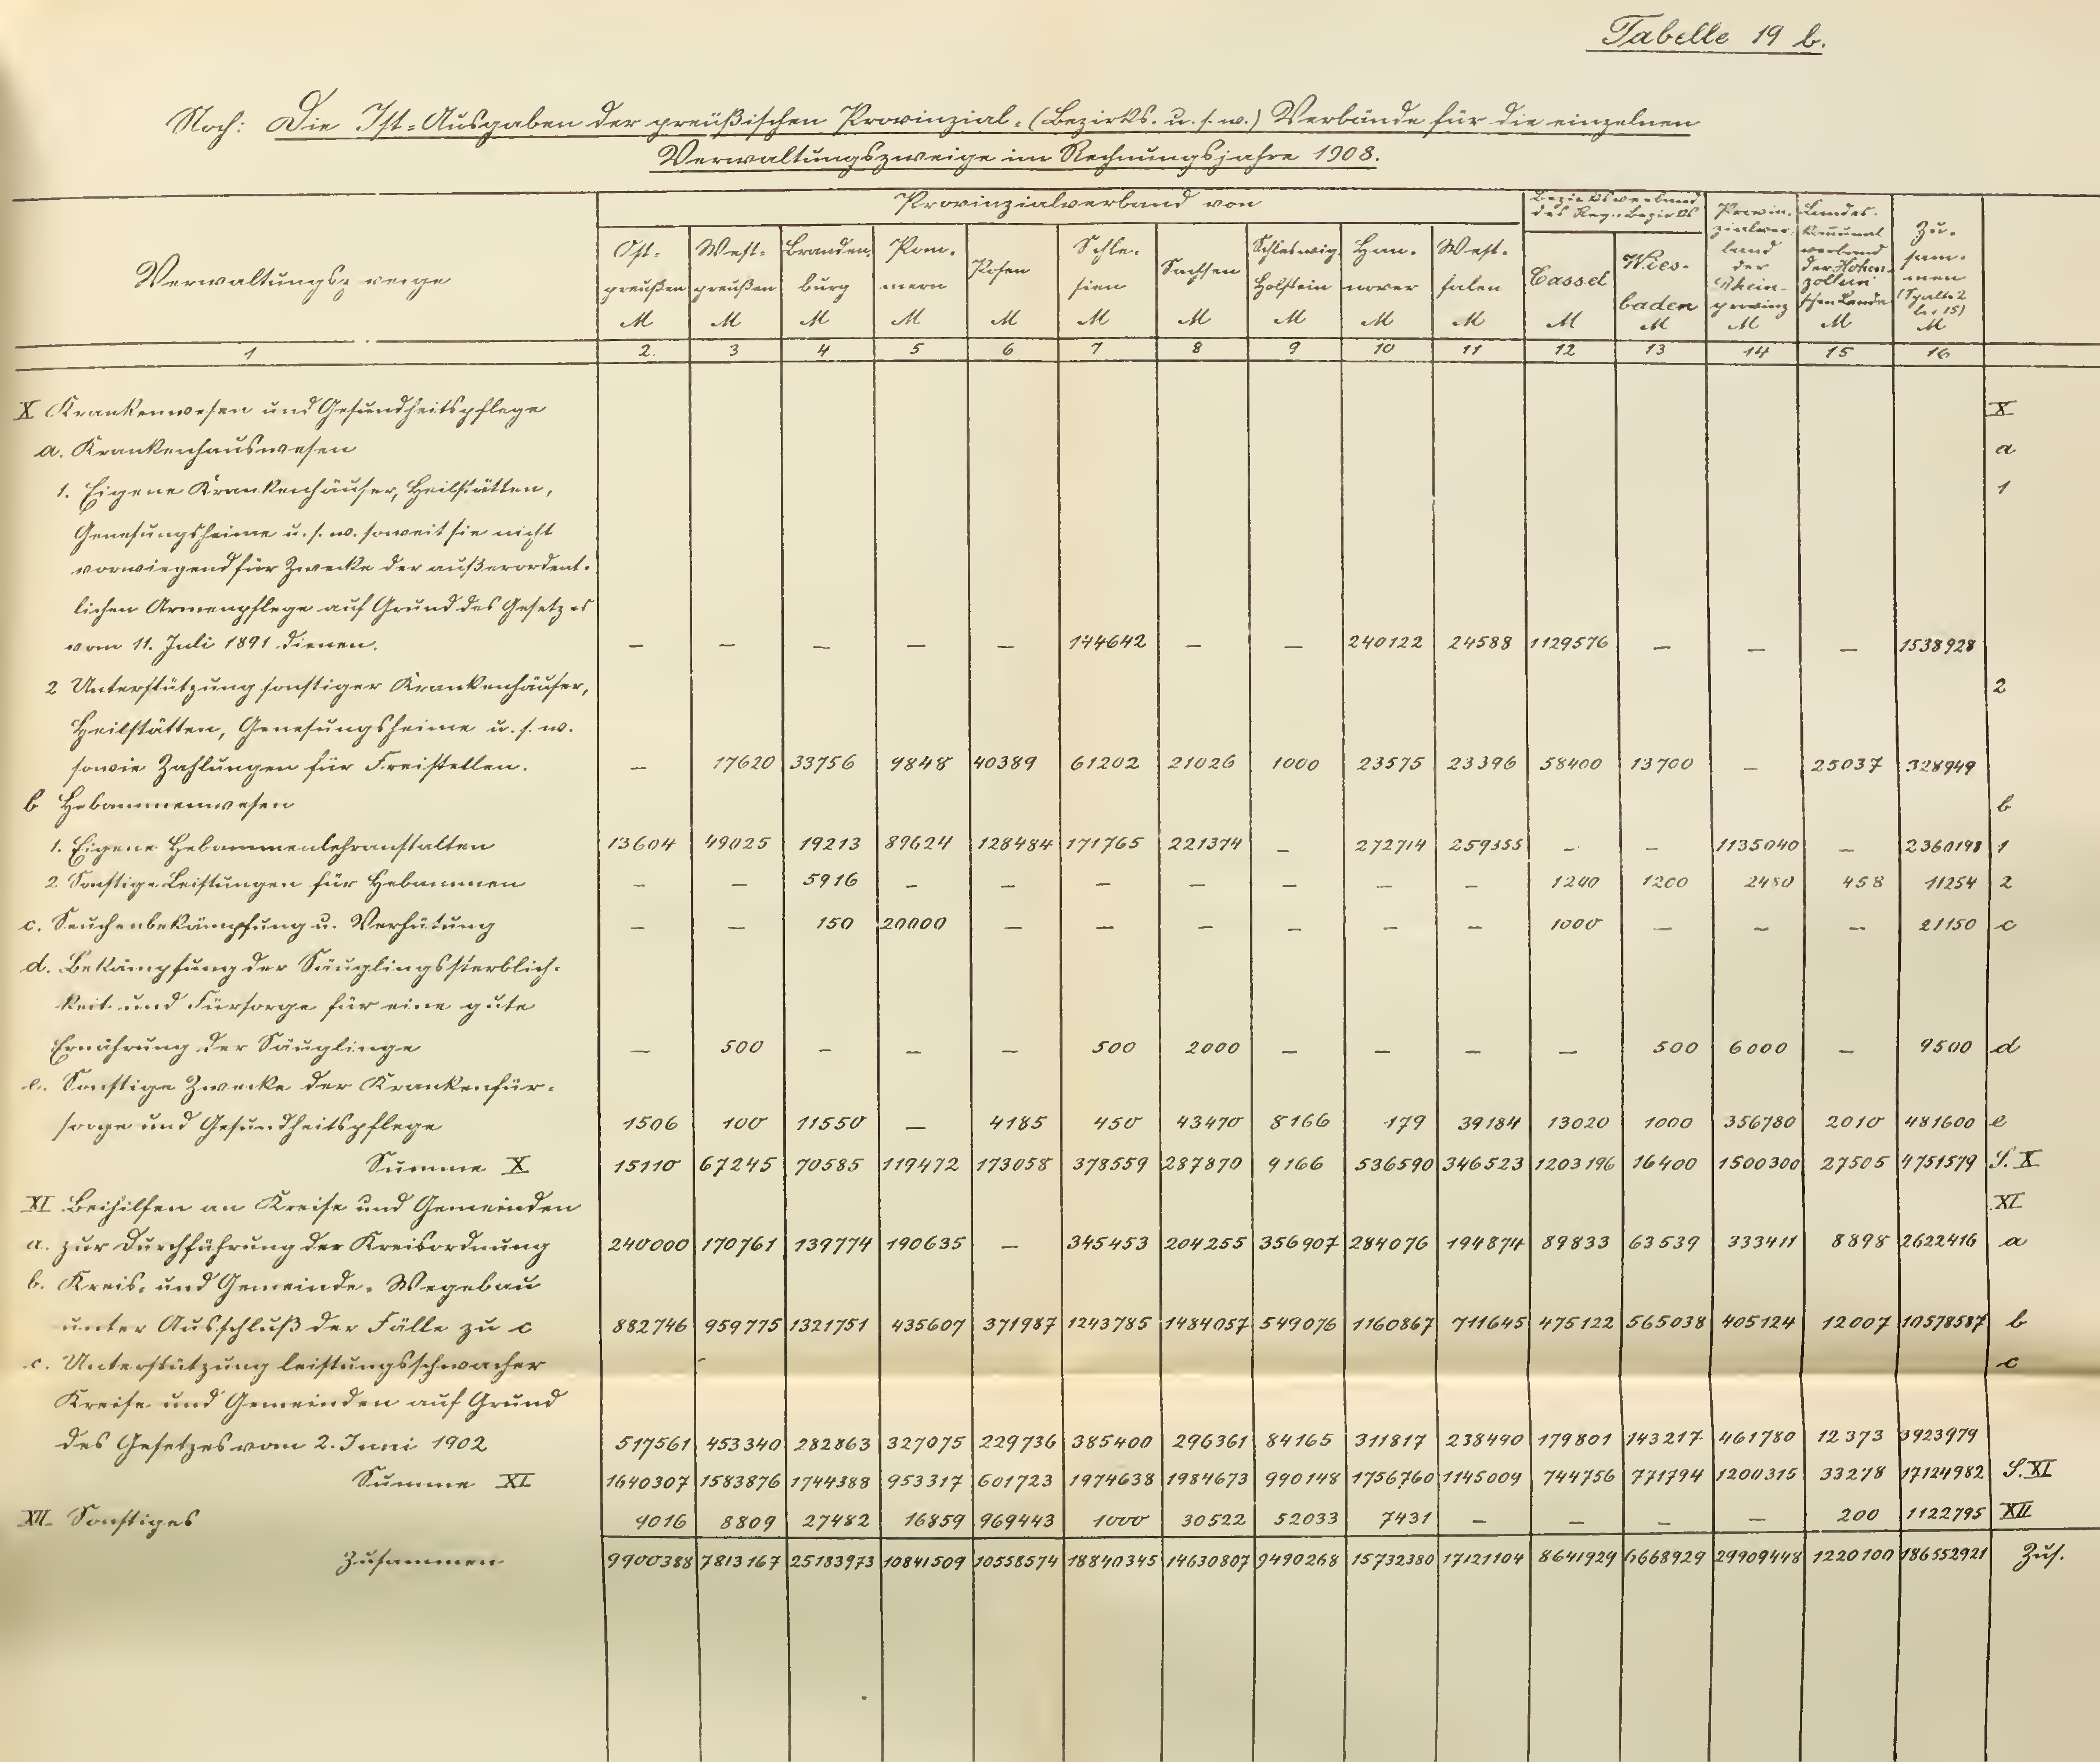 Tabelle 19 b.
Noch: Die Ist-Ausgaben der preußischen Provinzial-(Bezirks- u. s. w.) Verbände für die einzelnen
Verwaltungszweige im Rechnungsjahre 1908.
Verwaltungszweige
Provinzialverband von
Bezirksverband des Reg.-Bezirks
Provinzialverband der Rheinprovinz M
Landeskommunalverband der Hohenzollernschen Lande M
Zusammen (Spalte 2 bis 15) M
Ostpreußen M
Westpreußen M
Brandenburg M
Pommern M
Posen M
Schlesien M
Sachsen M
Schleswig Holstein M
Hannover M
Westfalen M
Cassel M
Wiesbaden M
1 2. 3 4 5 6 7 8 9 10 11 12 13 14 15 16
X Krankenwesen und Gesundheitspflege X
a. Krankenhauswesen a
1. Eigene Krankenhäuser, Heilstätten, 1
Genesungsheime u. s. w. soweit sie nicht
vorwiegend für Zwecke der außerordent-
lichen Armenpflege auf Grund des Gesetzes
vom 11. Juli 1891 dienen. — — — — — 144642 — — 240122 24588 1129576 — — — 1538928
2 Unterstützung sonstiger Krankenhäuser, 2
Heilstätten, Genesungsheime u. s. w.
sowie Zahlungen für Freistellen. — 17620 33756 9848 40389 61202 21026 1000 23575 23396 58400 13700 — 25037 328949
b Hebammenwesen b
1. Eigene Hebammenlehranstalten 13604 49025 19213 89624 128484 171765 221374 — 272714 259355 — — 1135040 — 2360198 1
2 Sonstige Leistungen für Hebammen — — 5916 — — — — — — — 1200 1200 2480 458 11254 2
c. Seuchenbekämpfung u. Verhütung — — 150 20000 — — — — — — 1000 — — — 21150 c
d. Bekämpfung der Säuglingssterblich-
keit und Fürsorge für eine gute
Ernährung der Säuglinge — 500 — — — 500 2000 — — — — 500 6000 — 9500 d
e. Sonstige Zwecke der Krankenfür-
sorge und Gesundheitspflege 1506 100 11550 — 4185 450 43470 8166 179 39184 13020 1000 356780 2010 481600 e
Summe X 15110 67245 70585 119472 173058 378559 287870 9166 536590 346523 1203196 16400 1500300 27505 4751579 S. X
XI Beihilfen an Kreise und Gemeinden XI
a. zur Durchführung der Kreisordnung 240000 170761 139774 190635 — 345453 204255 356907 284076 194874 89833 63539 333411 8898 2622416 a
b. Kreis- und Gemeinde-Wegebau
unter Ausschluß der Fälle zu c 882746 959775 1321751 435607 371987 1243785 1484057 549076 1160867 711645 475122 565038 405124 12007 10578587 b
c. Unterstützung leistungsschwacher c
Kreise und Gemeinden auf Grund
des Gesetzes vom 2. Juni 1902 517561 453340 282863 327075 229736 385400 296361 84165 311817 238490 179801 143217 461780 12373 3923979
Summe XI 1640307 1583876 1744388 953317 601723 1974638 1984673 990148 1756760 1145009 744756 771794 1200315 33278 17124982 S. XI
XII. Sonstiges 9016 8809 27482 16859 969443 1000 30522 52033 7431 — — — — 200 1122795 XII
Zusammen 9900388 7813167 25183973 10841509 10558574 18840345 14630807 9490268 15732380 17121104 8641929 6668929 29909448 1220100 186552921 Zus.